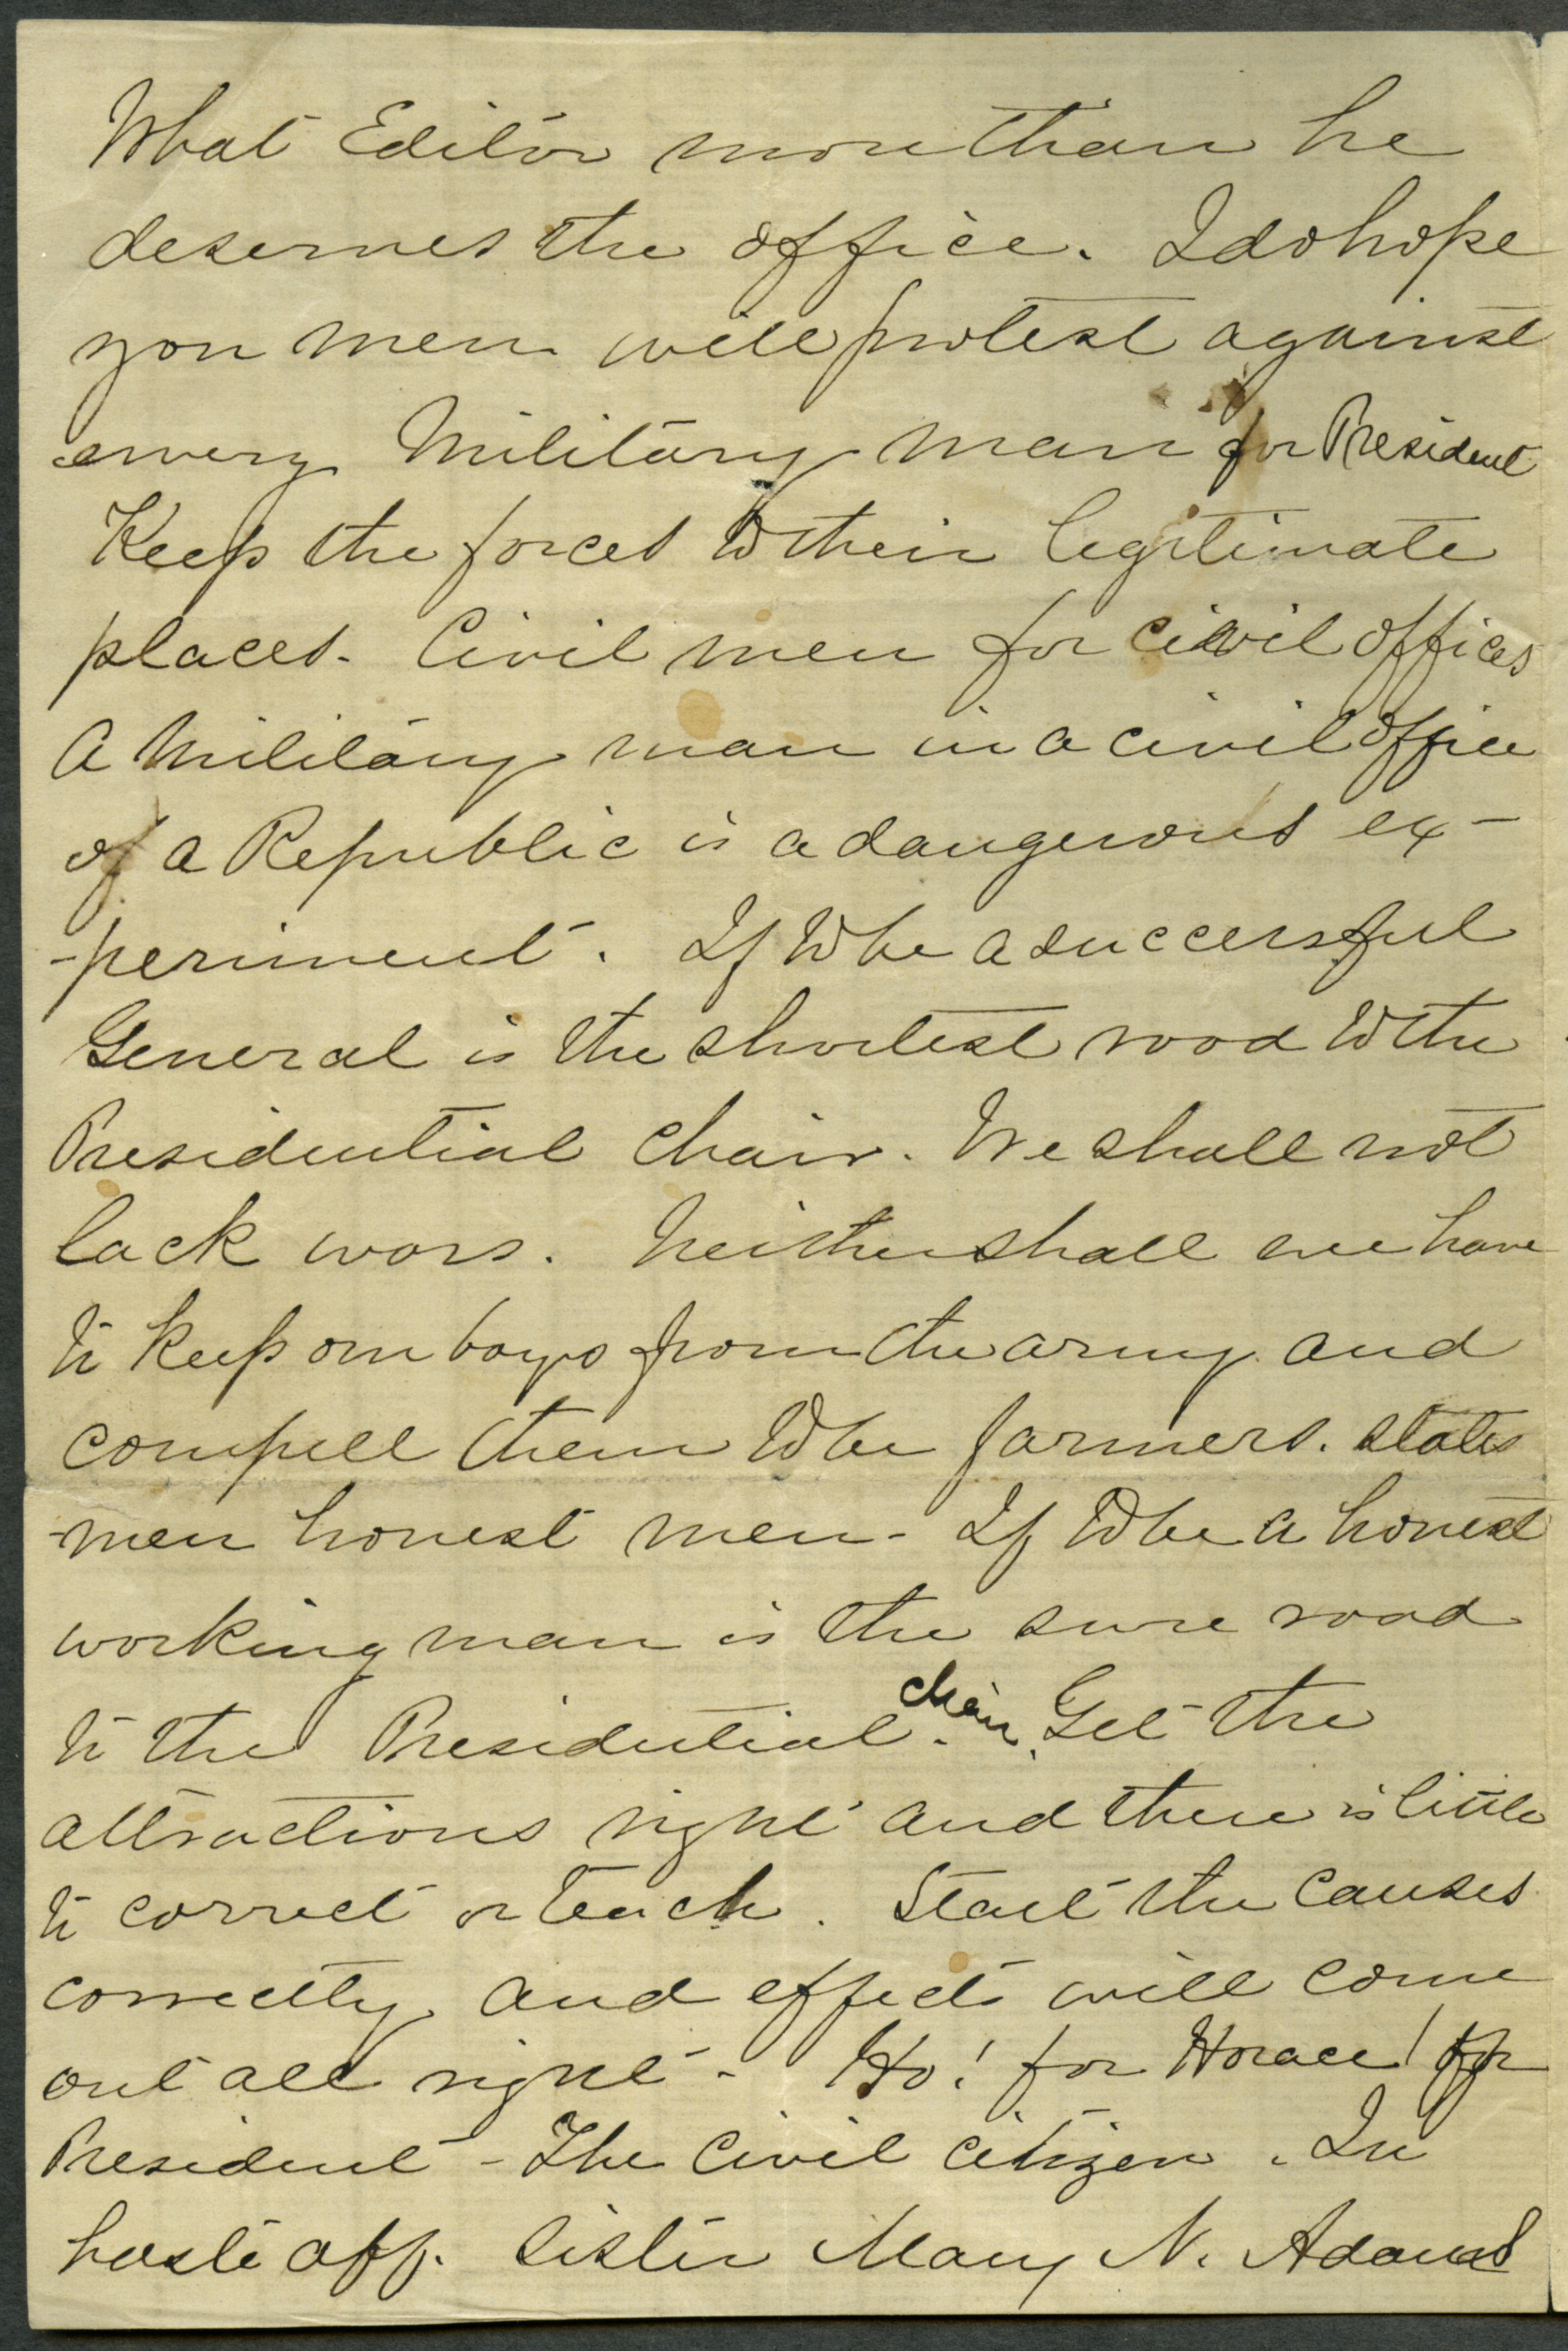 What Editor more than he
deserves the office. I do hope
you men will protest against
every Military man for President
Keep the forces to their legitimate
places. Civil men for civil offices
A Military man in a civil office
of a Republic is a dangerous ex-
-periment. If to be a successful
General is the shortest road to the
Presidential chair. We shall not
lack wars. Neither shall we have
to keep our boys from the army and
compell them to be farmers. states
-men honest men - If to be a honest
working man is the sure road
to the Presidential. chair. Get the
attractions right and there is little
to correct or teach. Start the causes
correctly and effects will come
out all right - Ho! for Horace! for
President - The Civil citizen. In
haste aff. Sister Mary N. Adams